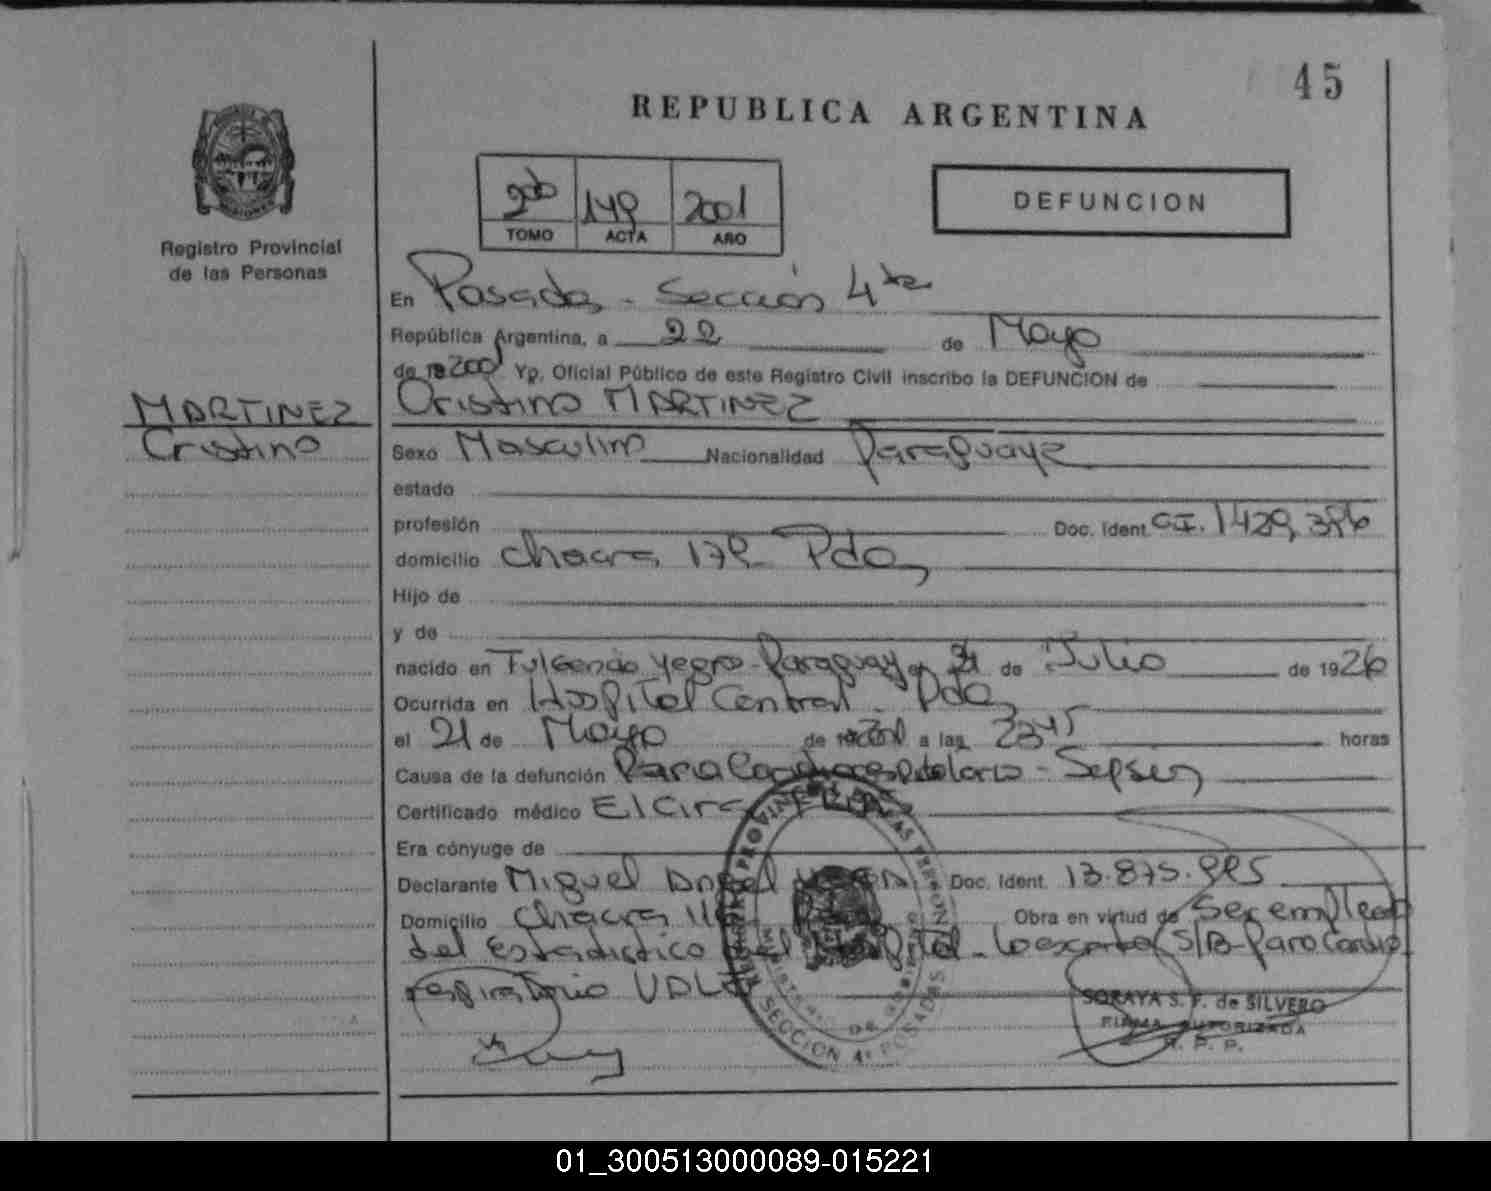 45
REPUBLICA ARGENTINA
DEFUNCION
2001
TOMO ACTA AÑO
Registro Provincial
de las Personas
En Posadas - Sección 4ta
República Argentina, a 22 de Mayo
de 19 2001 Yo, Oficial Público de este Registro Civil inscribo la DEFUNCION de
MARTINEZ
Cristino
Cristino MARTINEZ
Sexo Masculino Nacionalidad Paraguaya
estado
profesión Doc. Ident. C.I. 1429,386
domicilio Chacra 179 Pdas
Hijo de
y de
nacido en Fulgencio Yegro - Paraguay el 31 de Julio de 1926
Ocurrida en Hospital Central - Pdas
el 21 de Mayo de 19 2001 a las 23 45 horas
Causa de la defunción Paro Cardiorespiratorio - Sepsis
Certificado médico Elcira
Era cónyuge de
Declarante Miguel Angel Doc. Ident. 13.875.995
Domicilio Chacra Obra en virtud de Ser empleado
del Estadistico del Hospital - S/B - Paro Cardio
respiratorio VALE
SECCION 4ª POSADAS
SORAYA S. F. de SILVERO
FIRMA AUTORIZADA
R. P. P.
01_300513000089-015221